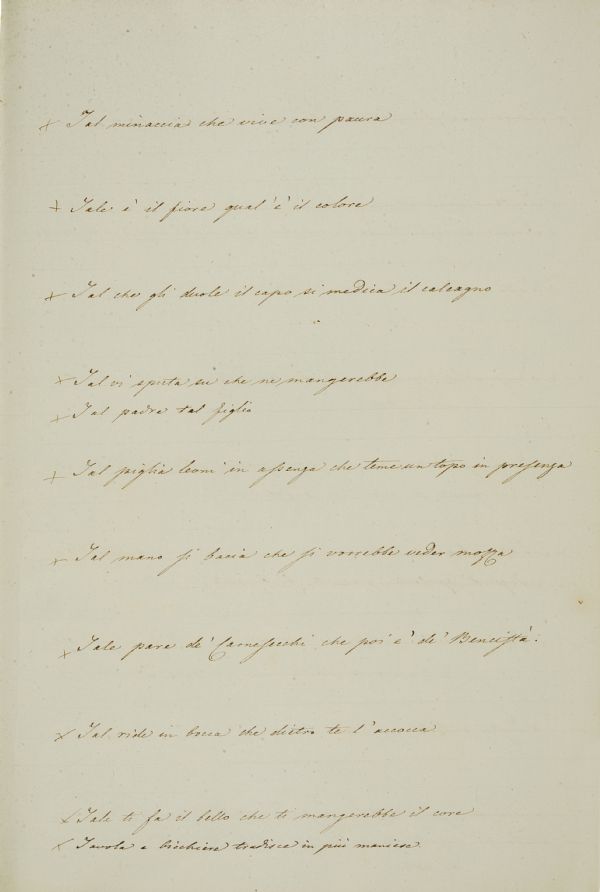 × Tal minaccia che vive con paura
× Tale è il fiore qual'è il colore
× Tal che gli duole il capo si medica il calcagno
× Tal vi sputa su che ne mangerebbe
× Tal padre tal figlio
× Tal piglia leoni in assenza che teme un topo in presenza
× Tal mano si bacia che si vorrebbe veder mozza
× Tale pare de' Carnesecchi che poi è de' Bencistà.
× Tal ride in bocca che dietro te l'accocca
× Tale ti fa il bello che ti mangerebbe il core
× Tavola e bicchiere tradisce in più maniere